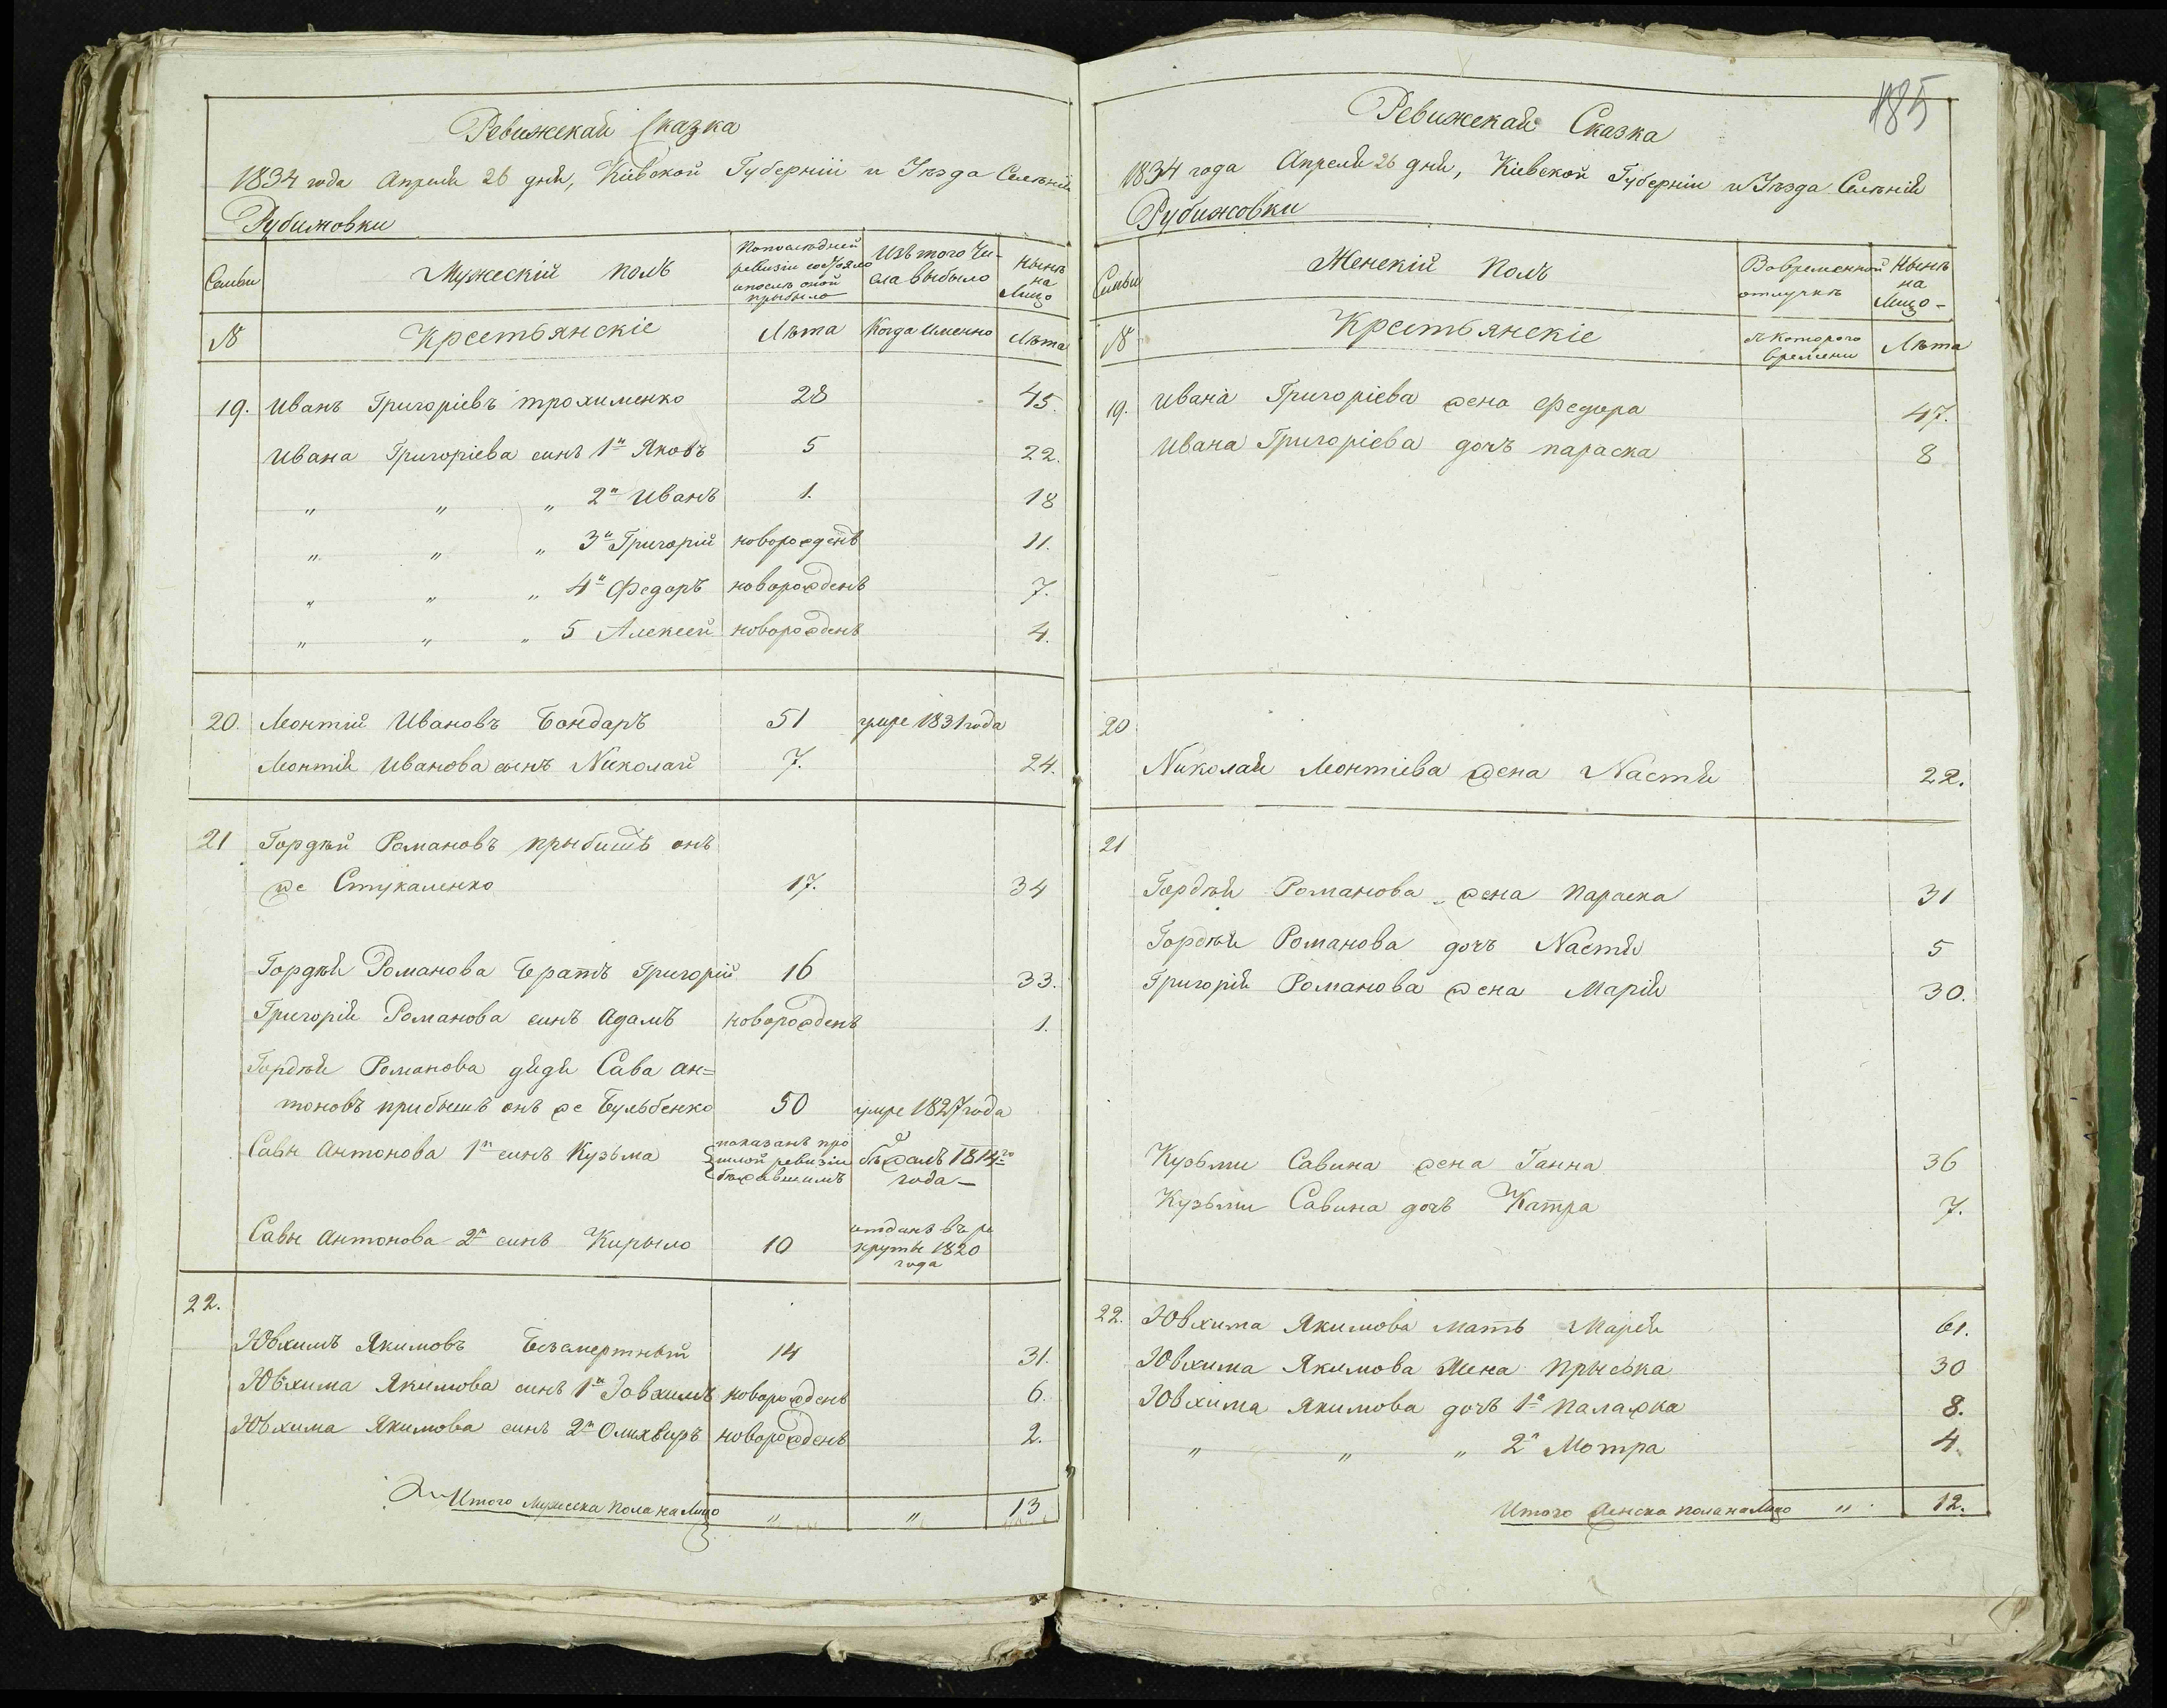 Ревижская Сказка
1834 года Апреля 26 дня, Кіевской Губерніи и Уѣзда Селѣнія
Рубижовки
Семьи
Мужескій полъ
Попослѣдней
ревизіи состояло
ипослѣ оной
прибыло
Изъ того Чи-
сла выбыло
Нынѣ
на
Лицо
№
Крестьянскіе
Лѣта
Когда именно
Лѣта
19. Иванъ Григоріевъ трохименко 28 45.
Ивана Григоріева синъ 1й Яковъ 5 22.
" " " 2й Иванъ 1. 18
" " " 3й Григорій новорожденъ 11.
" " " 4й Федоръ новорожденъ 7.
" " " 5 Алексей новорожденъ 4.
20. Монтій Ивановъ Бондаръ 51 умре 1831 года
Монтія Иванова сынъ Николай 7. 24.
21 Гордѣй Романовъ прыбишъ онъ
же Стукаленко 17. 34
Гордѣя Романова Братъ Григорій 16 33.
Григорія Романова синъ Адамъ новорожденъ 1.
Гордѣя Романова дядя Сава Ан=
тоновъ прибышъ онъ же Бульбенко 50 умре 1827 года
Савы Антонова 1й синъ Кузьма
показанъ про
шлой ревизіи
бежавшимъ
бѣжалъ 1814го
года
Савы Антонова 2й синъ Кирыло 10
отданъ въ ре
круты 1820
года
22.
Ювхимъ Якимовъ Безсмертный 14 31.
Ювхима Якимова синъ 1й Ювхимъ новорожденъ 6.
Ювхима Якимова синъ 2й Олихвиръ новорожденъ 2.
Итого Мужеска пола на Лицо " " 13
185
Ревижская Сказка
1834 года Апреля 26 дня, Кіевской Губерніи и Уѣзда Селѣнія
Рубижовки
Семьи
Женскій Полъ
Вовременной
отлучкѣ
Нынѣ
на
Лицо
№
Крестьянскіе
съ Которого
времени
Лѣта
19. Ивана Григоріева жена Федора 47.
Ивана Григоріева дочъ параска 8
20
Николая Монтіева жена Настя 22.
21
Гордѣя Романова жена Параска 31
Гордѣя Романова дочъ Настя 5
Григорія Романова жена Марія 30.
Кузьми Савина жена Ганна 36
Кузьми Савина дочъ Катра 7.
22. Ювхима Якимова Мать Марія 61.
Ювхима Якимова Жена Прыська 30
Ювхима Якимова дочъ 1я Палажка 8.
" " " 2я Мотра 4
Итого Женска пола на Лицо " 12.